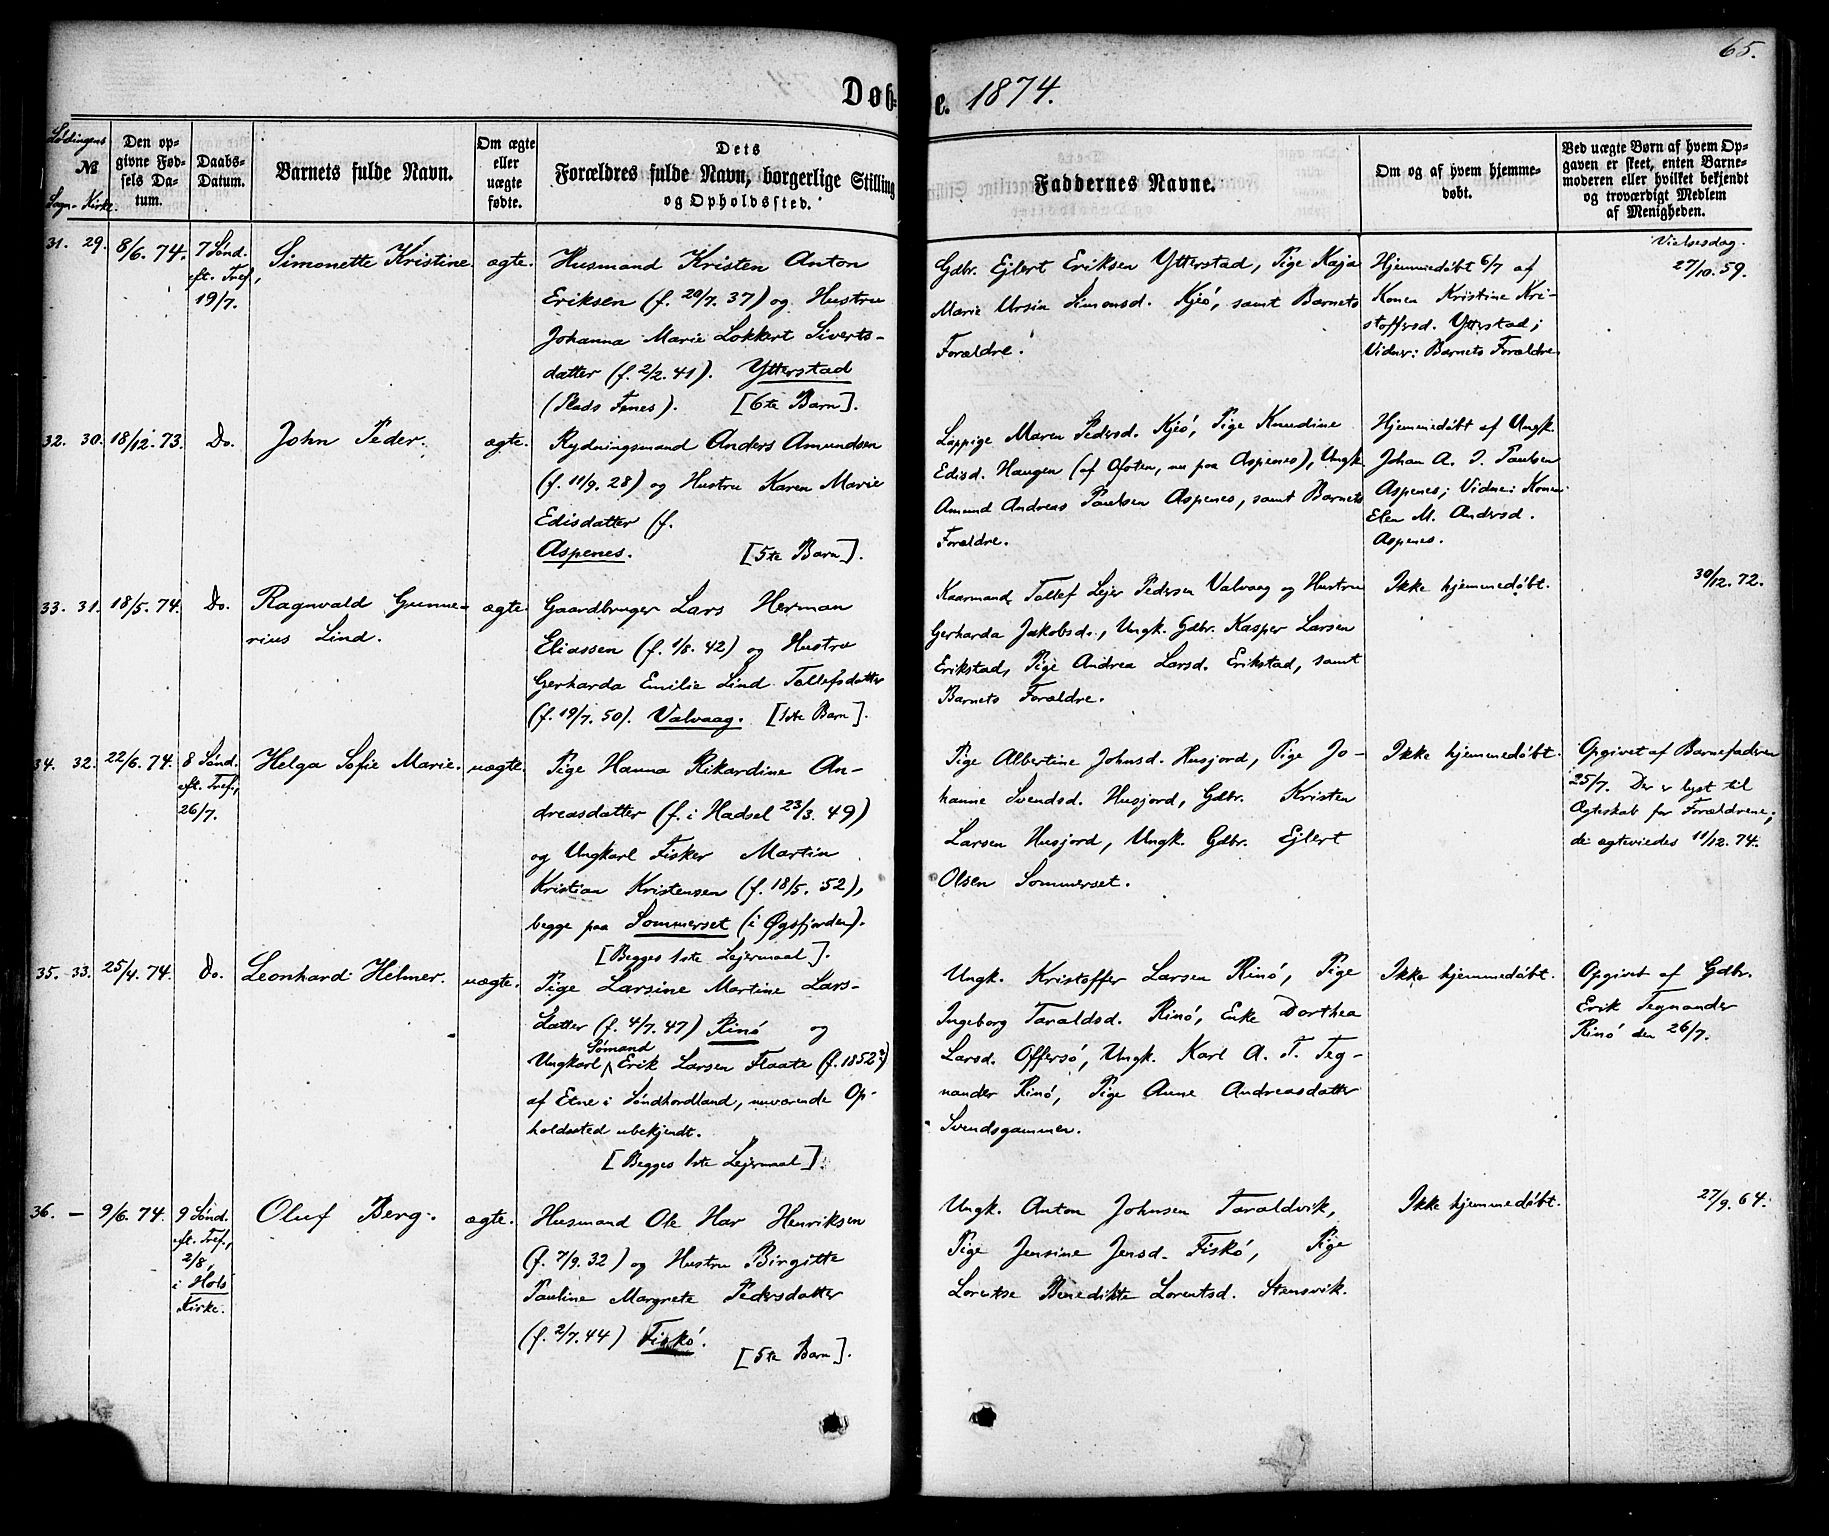 65.
Døbte. 1874.
Lødingens
№
Sogn- Kirke.
Den op-
givne Fød-
sels Da-
tum.
Daabs-
Datum.
Barnets fulde Navn.
Om ægte
eller
uægte
fødte.
Dets
Forældres fulde Navn, borgerlige Stilling
og Opholdssted.
Faddernes Navne.
Om og af hvem hjemme-
døbt.
Ved uægte Børn af hvem Op-
gaven er skeet, enten Barne-
moderen eller hvilket bekjendt
og troværdigt Medlem
af Menigheden.
31. 29. 8/6. 74.
7 Sønd.
eft. Tref.,
19/7.
Simonette Kristine.
ægte.
Husmand Kristen Anton
Eriksen (f. 20/7. 37) og Hustru
Johanna Marie Lokkert Siverts-
datter (f. 2/2. 41). Ytterstad
(Plads Fenes). [6te Barn].
Gdbr. Ejlert Eriksen Ytterstad, Pige Kaja
Marie Ursin Simonsd. Kjeö, samt Barnets
Forældre.
Hjemmedøbt 6/7 af
Konen Kristine Kri-
stoffersd. Ytterstad;
Vidner: Barnets Forældre.
Vielsesdag.
27/10. 59.
32. 30. 18/12. 73.
Do.
John Peder.
ægte.
Rydningsmand Anders Amundsen
(f. 11/9. 28) og Hustru Karen Marie
Edisdatter (f.
Aspenes. [5te Barn].
Lappige Maren Pedersd. Kjeö, Pige Knudine
Edisd. Haugen (af Ofoten, nu paa Aspenes), Ungk.
Amund Andreas Paulsen Aspenes, samt Barnets
Forældre.
Hjemmedøbt af Ungk.
Johan A. J. Paulsen
Aspenes; Vidne: Konen
Elen M. Andersd.
Aspenes.
33. 31. 18/5. 74.
Do.
Ragnvald Gunne-
rius Lind.
ægte.
Gaardbruger Lars Herman
Eliassen (f. 1/8. 42) og Hustru
Gerharda Emilie Lind Tollefsdatter
(f. 19/7. 50). Valvaag. [1ste Barn].
Kaarmand Tollef Lejer Pedersen Valvaag og Hustru
Gerharda Jakobsd., Ungk. Gdbr. Kasper Larsen
Erikstad, Pige Andrea Larsd. Erikstad, samt
Barnets Forældre.
Ikke hjemmedøbt.
30/12. 72.
34. 32. 22/6. 74.
8 Sønd.
eft. Tref.,
26/7.
Helga Sofie Marie.
uægte.
Pige Hanna Rikardine An-
dreasdatter (f. i Hadsel 23/3. 49)
og Ungkarl Fisker Martin
Kristian Kristensen (f. 18/5. 52),
begge paa Sommerset (i Øgsfjorden).
[Begges 1ste Lejermaal].
Pige Albertine Johnsd. Husjord, Pige Jo-
hanne Svendsd. Husjord, Gdbr. Kristen
Larsen Husjord, Ungk. Gdbr. Ejlert
Olsen Sommerset.
Ikke hjemmedøbt.
Opgivet af Barnefaderen
25/7. Der er lyst til
Ægteskab for Forældrene;
de ægteviedes 11/12. 74.
35. 33. 25/4. 74.
Do.
Leonhard Helmer.
uægte.
Pige Larsine Martine Lars-
datter (f. 4/7. 47) Rinö og
Sømand
Ungkarl Erik Larsen Flaate (f. 1852?)
af Etne i Søndhordland, nuværende Op-
holdssted ubekjendt.
[Begges 1ste Lejermaal].
Ungk. Kristoffer Larsen Rinö, Pige
Ingeborg Taraldsd. Rinö, Enke Dorthea
Larsd. Offersö, Ungk. Karl A. T. Teg-
nander Rinö, Pige Anne Andreasdatter
Svendsgammen.
Ikke hjemmedøbt.
Opgivet af Gdbr.
Erik Tegnander
Rinö den 26/7.
36. — 9/6. 74.
9 Sønd.
eft. Tref.,
2/8,
i Hols
Kirke.
Oluf Berg.
ægte.
Husmand Ole Har Henriksen
(f. 7/9. 32) og Hustru Birgitte
Pauline Margrete Pedersdatter
(f. 2/7. 44) Fiskö.
[5te Barn].
Ungk. Anton Johnsen Taraldvik,
Pige Jensine Jensd. Fiskö, Pige
Lorentse Benedikte Lorentsd. Stensvik.
Ikke hjemmedøbt.
27/9. 64.